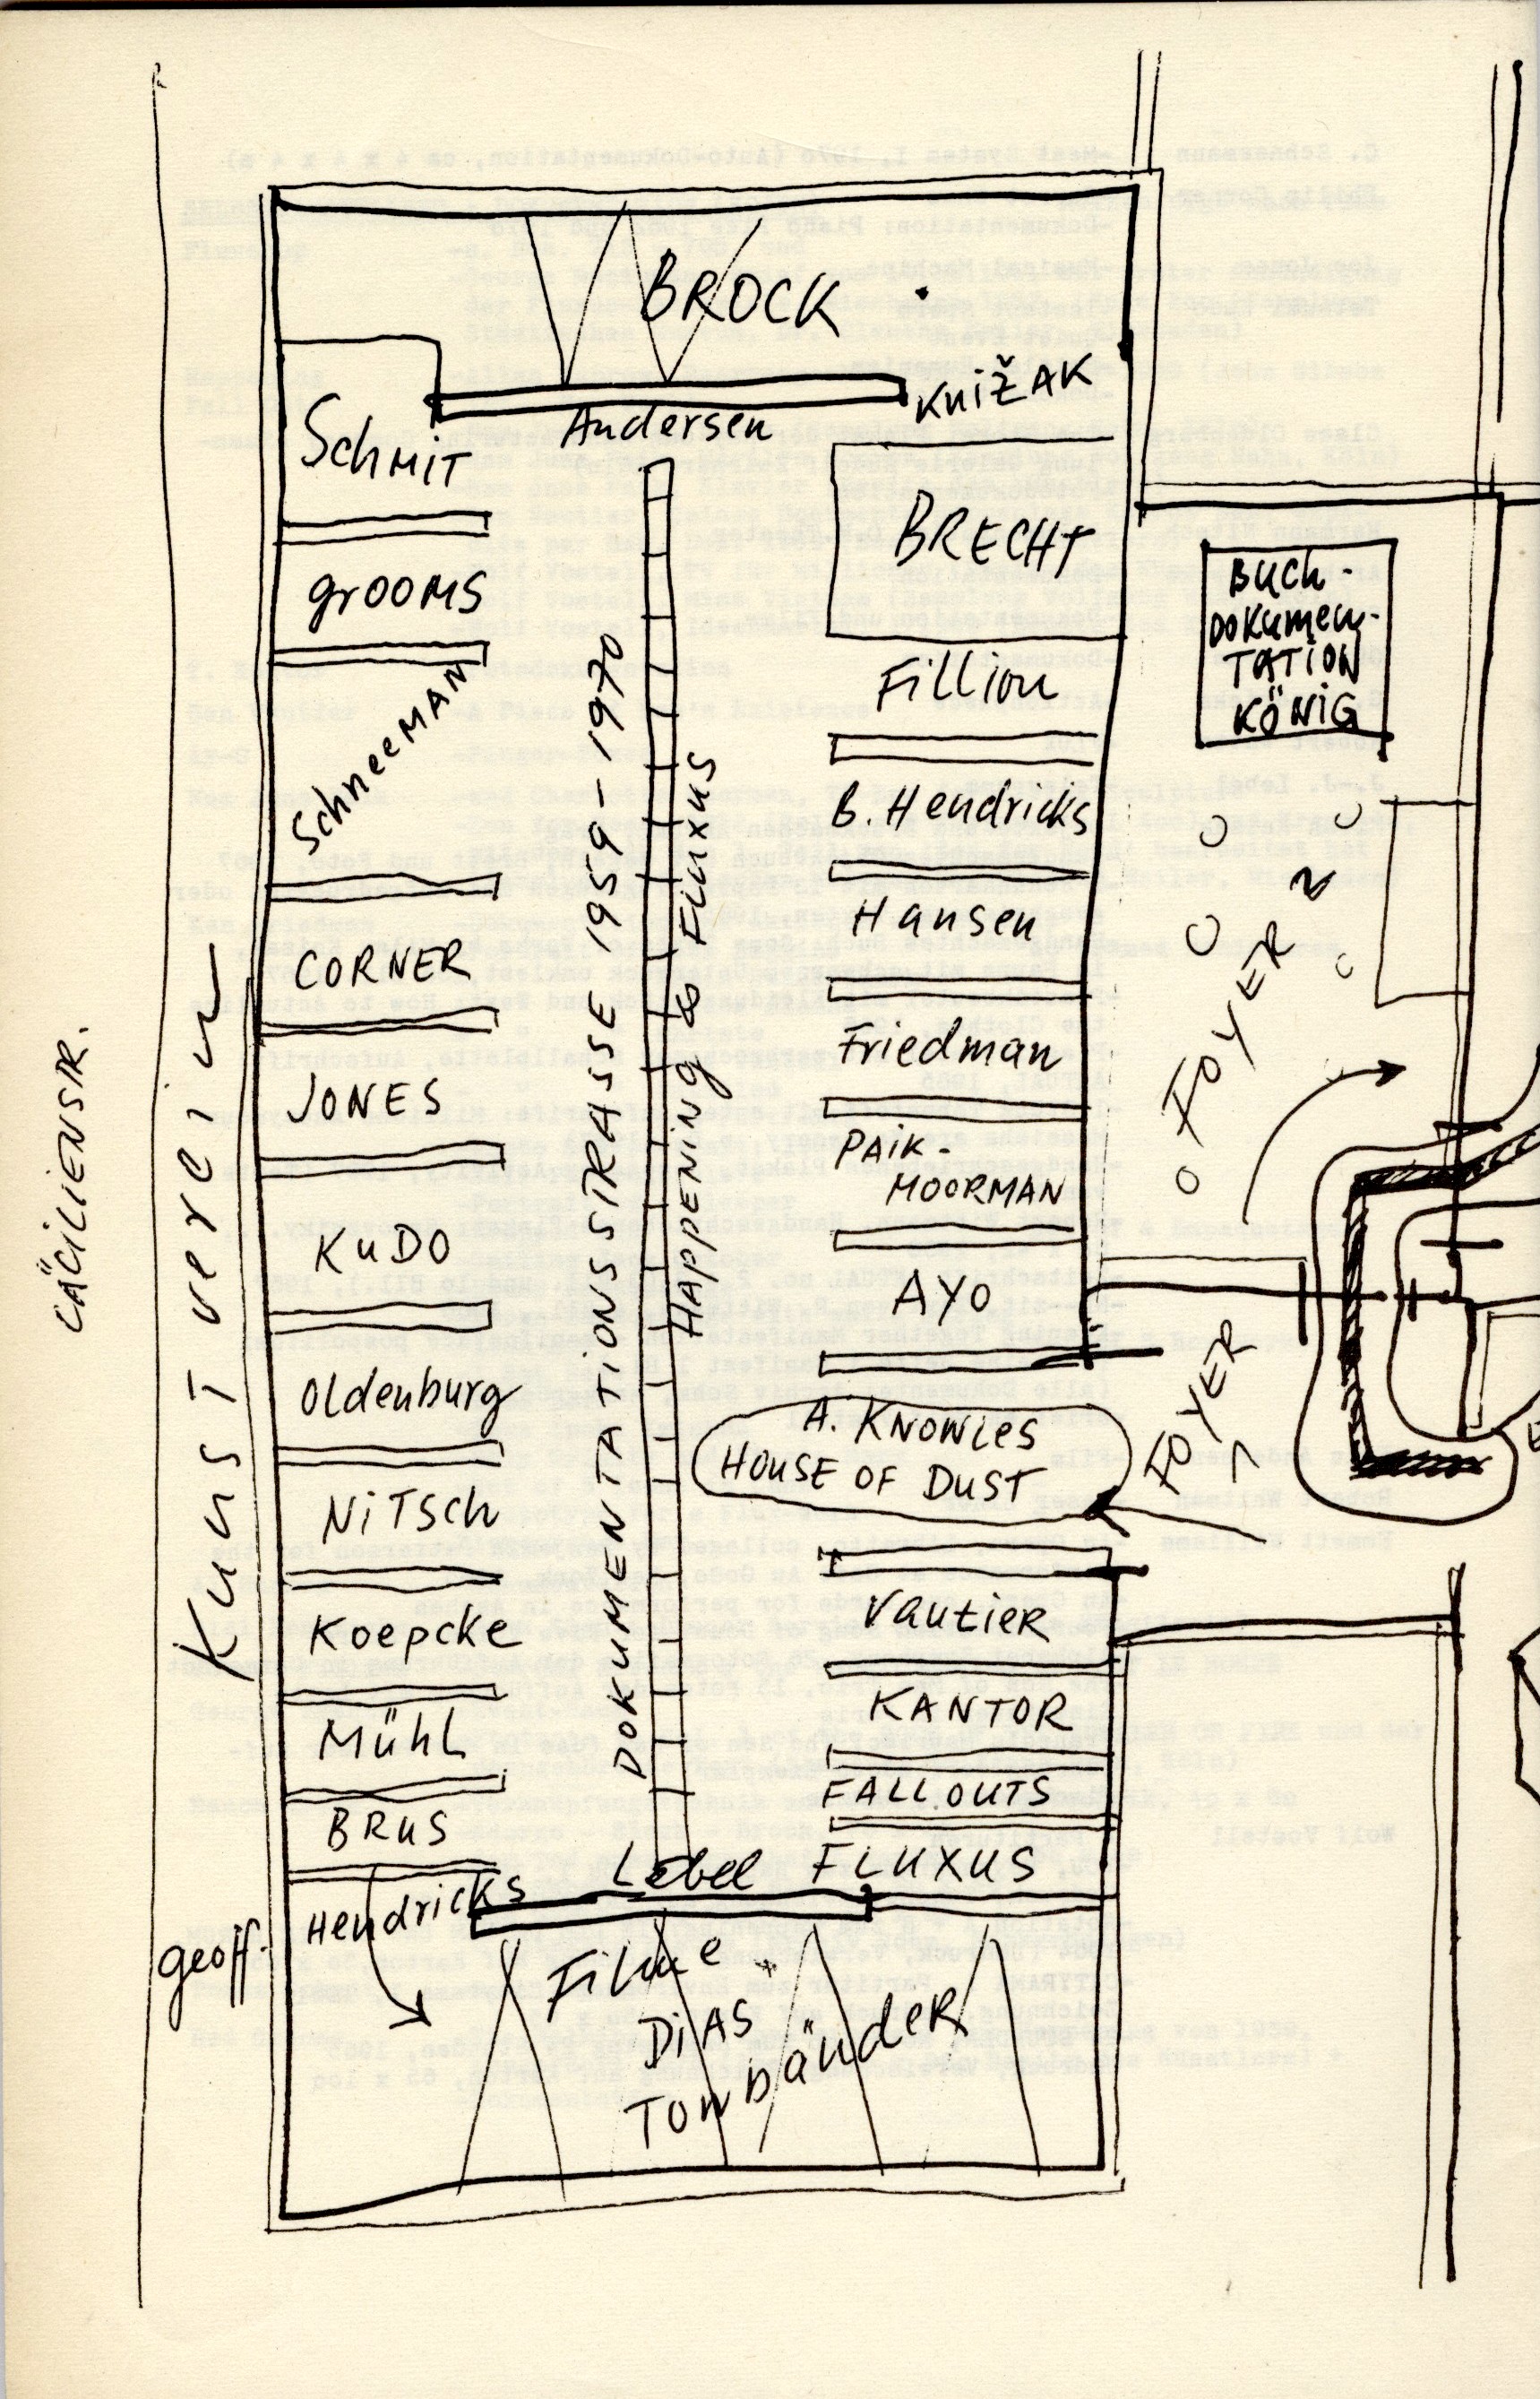 CÄCILIENSTR.
Kunstverein
BROCK
Andersen
KNIŽAK
Schmit
grooms
SchneeMAN
CORNER
JONES
KuDO
Oldenburg
NiTsch
Koepcke
Mühl
BRUS
Hendricks
geoff.
DOKUMENTATIONSSTRASSE 1959-1970
HAPPENING & FLUXUS
BRECHT
Fillion
B. Hendricks
Hansen
Friedman
PAIK-
MOORMAN
AYO
A. KNOWLES
HOUSE OF DUST
Vautier
KANTOR
FALLOUTS
FLUXUS
Lebel
Filme
DiAS +
Tonbänder
BUCH-
DOKUMEN-
TATION
KÖNIG
FOYER 2
FOYER 1